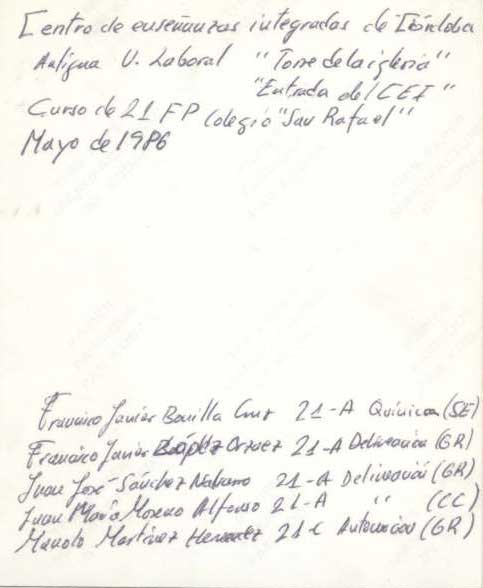 Centro de enseñanzas integradas de Córdoba
Antigua U. Laboral "Torre de la iglesia"
"Entrada del CEI"
Curso de 21 FP Colegio "San Rafael"
Mayo de 1986
Francisco Javier Bonilla Cruz 21-A Química (SE)
Francisco Javier López 21-A Delineación (GR)
Juan José Sánchez 21-A Delineación (GR)
Juan María Moreno Alfonso 21-A " (CC)
Manolo Martínez 21C (GR)